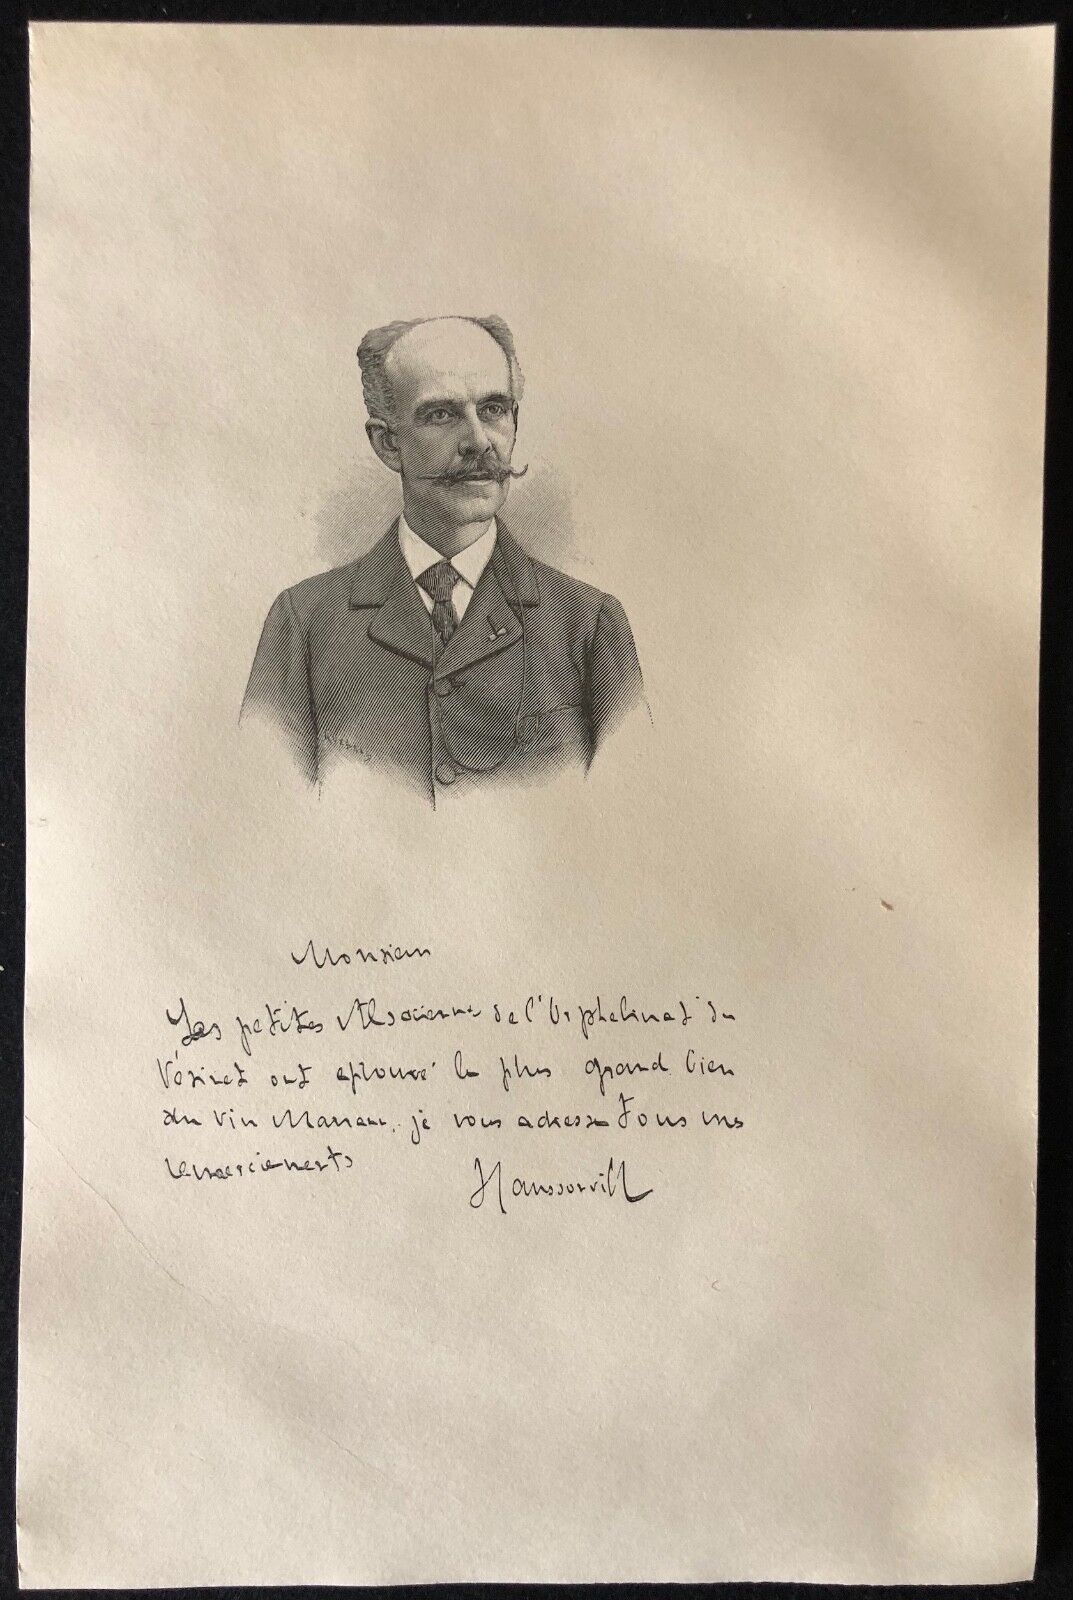 Monsieur
Les petites Alsaciennes de l'Orphelinat du
Vésinet ont eprouvé le plus grand bien
du vin Mariani, je vous adresse tous mes
remerciements
Haussonville